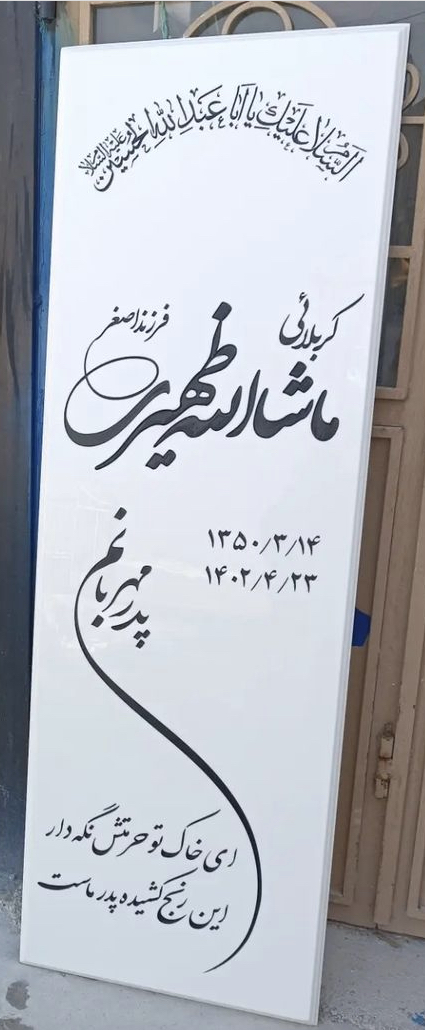 السلام علیک یا ابا عبدالله الحسین علیه السلام
کربلائی
ماشاالله ظهیری
فرزند اصغر
۱۳۵۰/۳/۱۴
۱۴۰۲/۴/۲۳
پدر مهربانم
ای خاک تو حرمتش نگه دار
این رنج کشیده پدر ماست